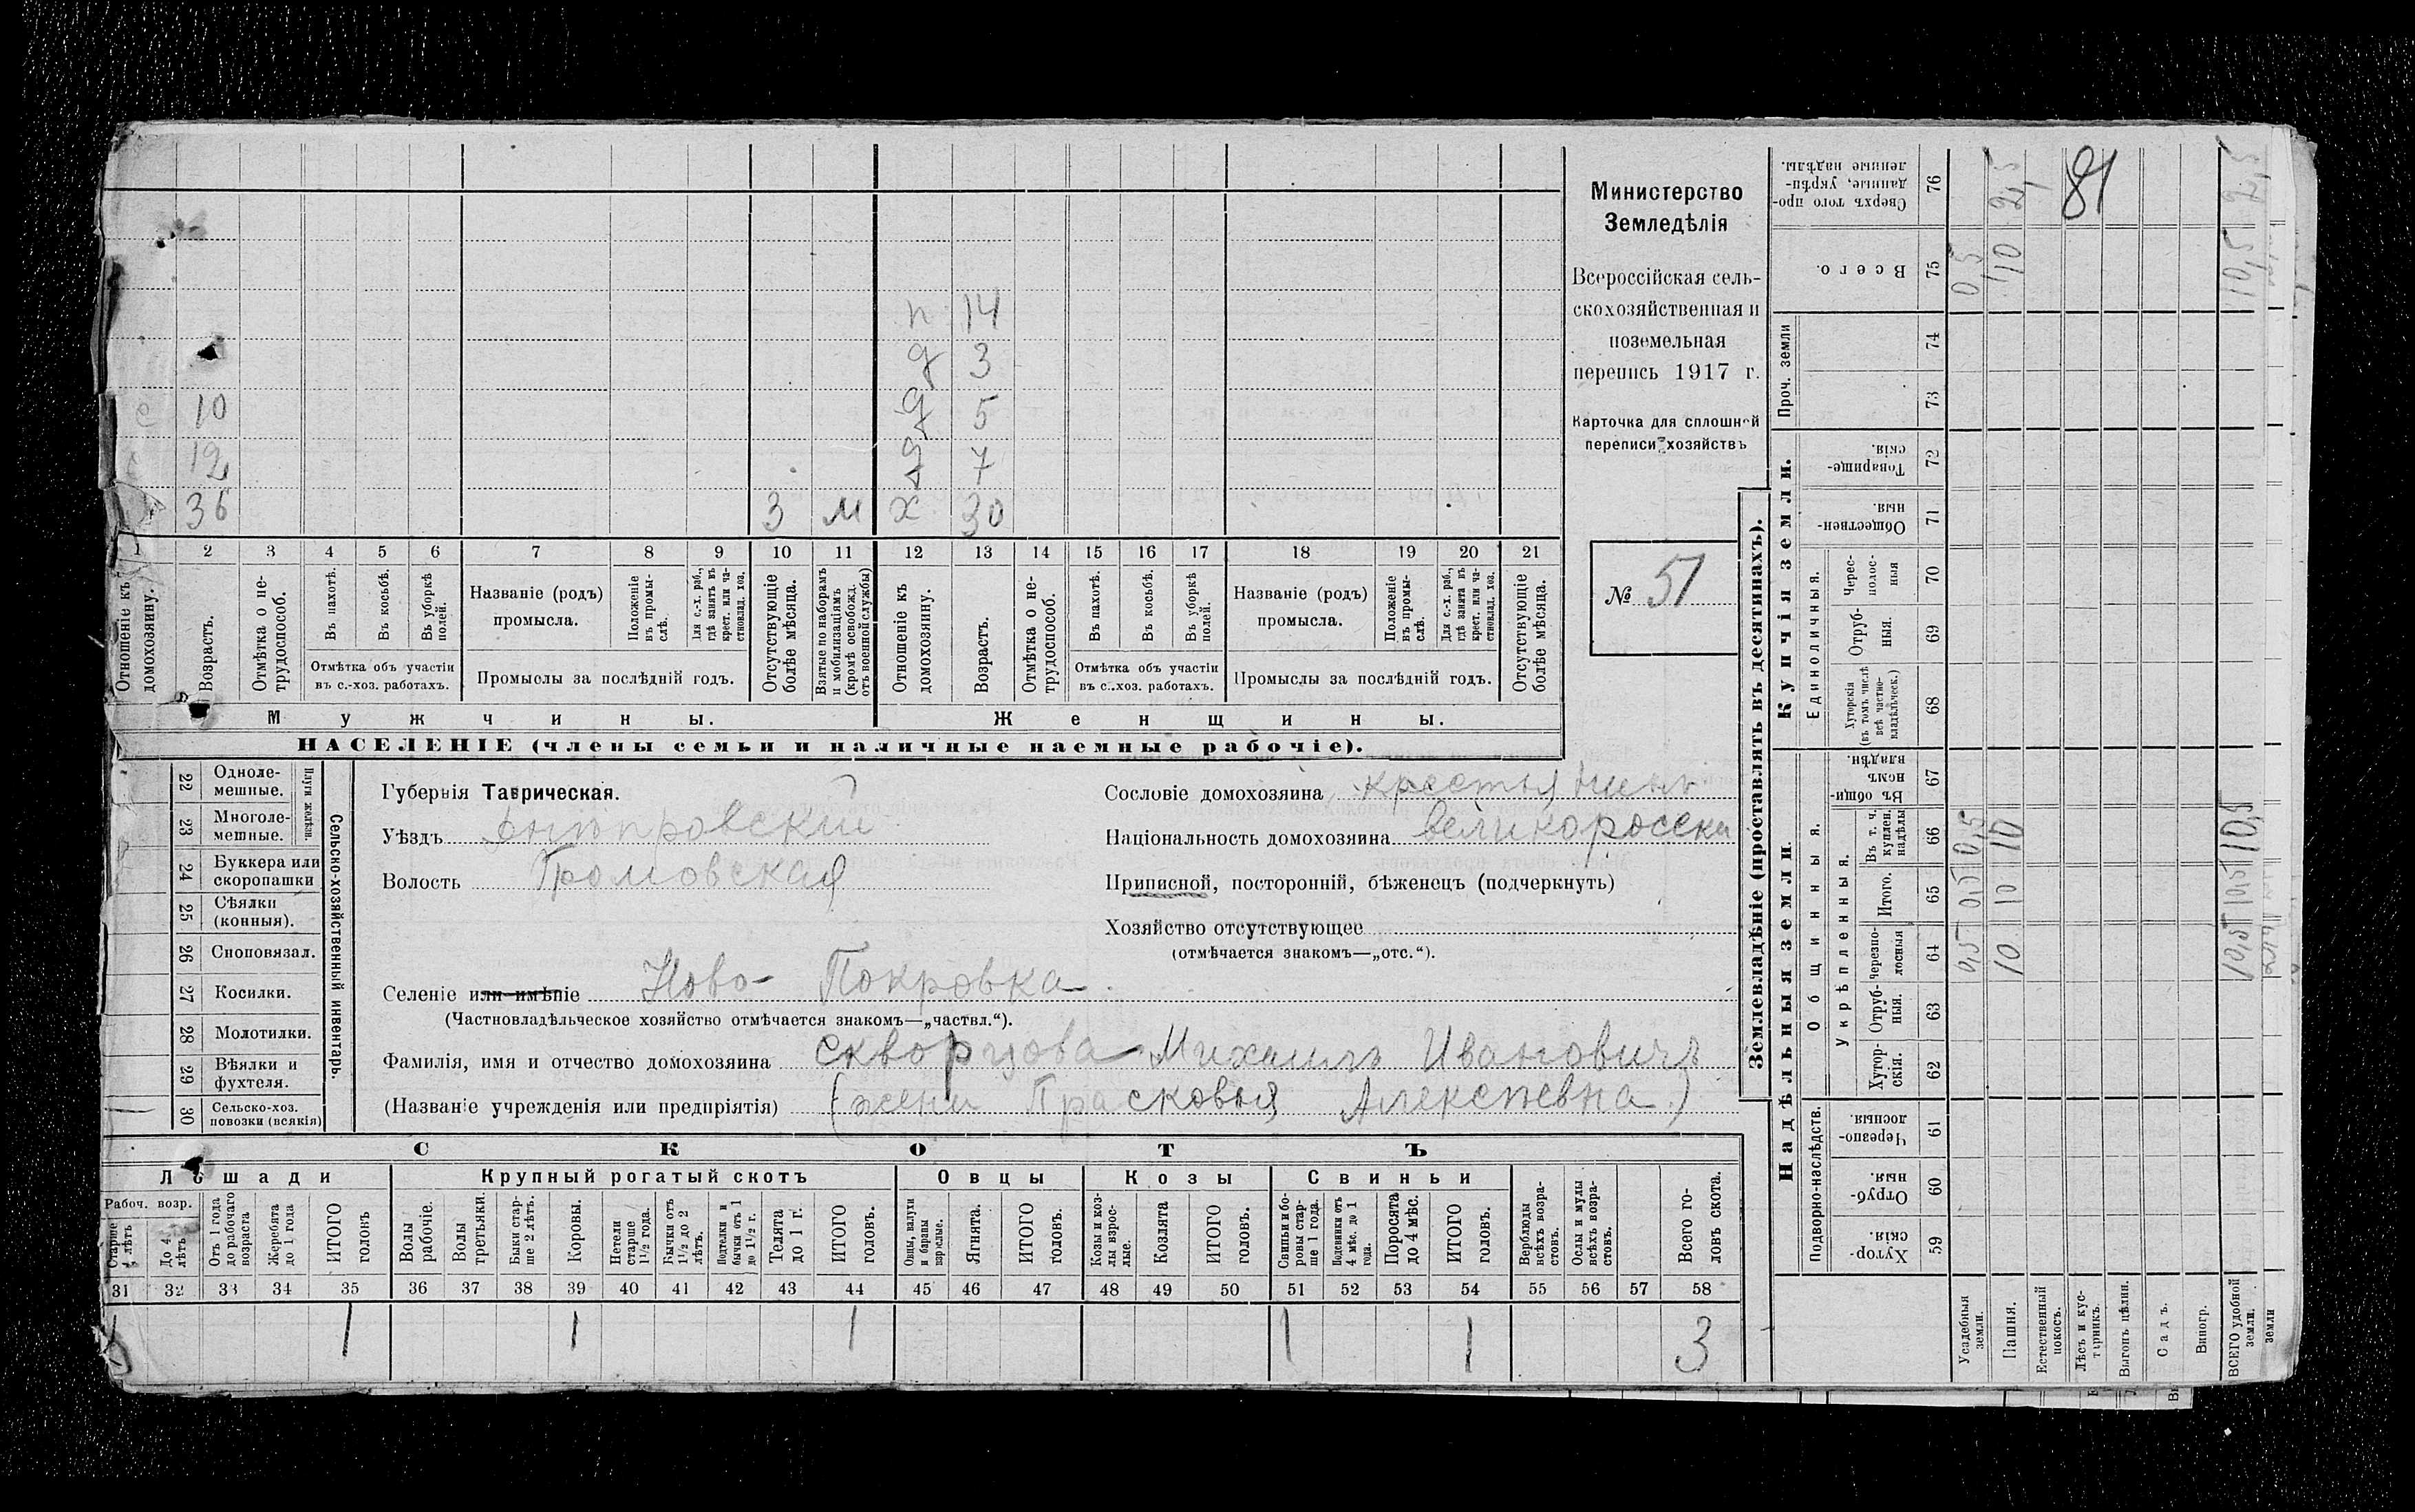 Министерство
Земледѣлія
Всероссійская сель-
скохозяйственная и
поземельная
перепись 1917 г.
Карточка для сплошной
переписи хозяйствъ
№ 51
п 14
д 3
с 10 д 5
с 12 д 7
36 3 м х 30
1 2 3 4 5 6 7 8 9 10 11 12 13 14 15 16 17 18 19 20 21
Отношеніе къ домохозяину.
Возрастъ.
Отмѣтка о не-трудоспособ.
Въ пахотѣ.
Въ косьбѣ.
Въ уборкѣ полей.
Отмѣтка объ участіи
въ с.-хоз. работахъ.
Названіе (родъ)
промысла.
Положеніе въ промы-слѣ.
Для с.-х. раб., гдѣ занятъ въ крест. или ча-стновлад. хоз.
Промыслы за послѣдній годъ.
Отсутствующіе болѣе мѣсяца.
Взятые по наборамъ и мобилизаціямъ (кромѣ освобожд. отъ военной службы)
Отношеніе къ домохозяину.
Возрастъ.
Отмѣтка о не-трудоспособ.
Въ пахотѣ.
Въ косьбѣ.
Въ уборкѣ полей.
Отмѣтка объ участіи
въ с.-хоз. работахъ.
Названіе (родъ)
промысла.
Положеніе въ промы-слѣ.
Для с.-х. раб., гдѣ занята въ крест. или ча-стновлад. хоз.
Промыслы за послѣдній годъ.
Отсутствующіе болѣе мѣсяца.
Мужчины. Женщины.
НАСЕЛЕНІЕ (члены семьи и наличные наемные рабочіе).
22 Одноле-мешные.
23 Многоле-мешные.
Плуги желѣзн.
24 Буккера или скоропашки
25 Сѣялки (конныя).
26 Сноповязал.
27 Косилки.
28 Молотилки.
29 Вѣялки и фухтеля.
30 Сельско-хоз. повозки (всякія)
Сельско-хозяйственный инвентарь.
Губернія Таврическая.
Уѣздъ Днѣпровскій
Волость Громовская
Сословіе домохозяина крестьянинъ
Національность домохозяина великоросски
Приписной, посторонній, бѣженецъ (подчеркнуть)
Хозяйство отсутствующее
(отмѣчается знакомъ—„отс.“).
Селеніе или имѣніе Ново-Покровка
(Частновладѣльческое хозяйство отмѣчается знакомъ—„частвл.“).
Фамилія, имя и отчество домохозяина Скворцова Михаилъ Ивановичъ
(Названіе учрежденія или предпріятія) (жена Прасковья Алексѣевна)
СКОТЪ
Лошади Крупный рогатый скотъ Овцы Козы Свиньи
Рабоч. возр.
Старше 4 лѣтъ
До 4 лѣтъ
Отъ 1 года до рабочаго возраста
Жеребята до 1 года
ИТОГО головъ
Волы рабочіе.
Волы третьяки.
Быки стар-ше 2 лѣтъ.
Коровы.
Нетели старше 1½ года.
Бычки отъ 1½ до 2 лѣтъ.
Подтелки и бычки отъ 1 до 1½ г.
Телята до 1 г.
ИТОГО головъ.
Овцы, валухи и бараны взрослые.
Ягнята.
ИТОГО головъ.
Козы и коз-лы взрос-лые.
Козлята
ИТОГО головъ.
Свиньи и бо-ровы стар-ше 1 года.
Подсвинки отъ 4 мѣс. до 1 года.
Поросята до 4 мѣс.
ИТОГО головъ.
Верблюды всѣхъ возра-стовъ.
Ослы и мулы всѣхъ возра-стовъ.
Всего го-ловъ скота.
31 32 33 34 35 36 37 38 39 40 41 42 43 44 45 46 47 48 49 50 51 52 53 54 55 56 57 58
1 1 1 1 1 1 3
Землевладѣніе (проставлять въ десятинахъ).
Надѣльныя земли.
Купчія земли.
Подворно-наслѣдств.
Общинныя.
Укрѣпленныя.
Единоличныя.
Проч. земли
Хутор-скія. 59
Отруб-ныя 60
Черезпо-лосныя 61
Хутор-скія. 62
Отруб-ныя. 63
черезпо-лосныя 64
Итого. 65
Въ т. ч. куплен. надѣлы 66
Въ общин-номъ владѣн. 67
Хуторскія (въ томъ числѣ всѣ частно-владѣльческ.) 68
Отруб-ныя. 69
Черес-полос-ныя 70
Обществен-ныя. 71
Товарище-скія. 72
73
74
Всего. 75
Сверхъ того про-данные, укрѣп-ленные надѣлы. 76
Усадебныя земли. 0,5 0,5 0,5 0,5
Пашня. 10 10 10 10 2,5
Естественный покосъ.
Лѣсъ и кус-тарникъ.
81
Выгонъ цѣлин.
Садъ.
Виногр.
ВСЕГО удобной земли. 10,5 10,5 10,5 10,5 2,5
земли